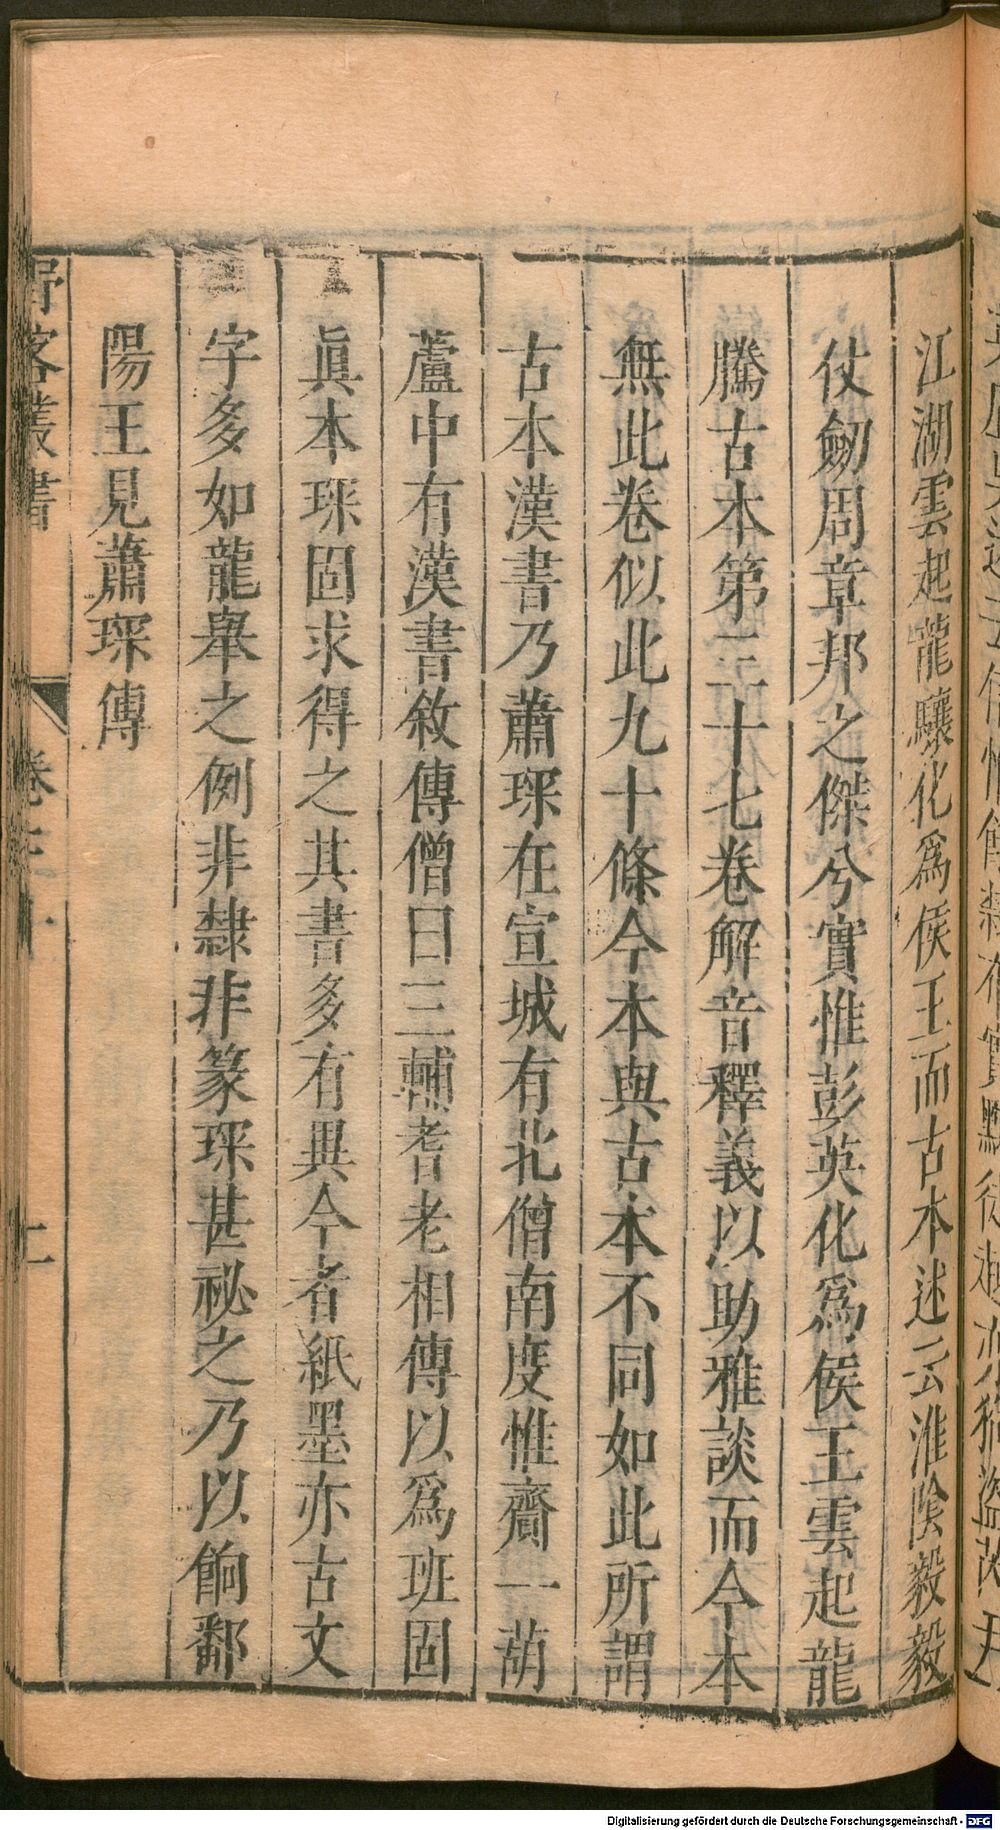 江湖雲起龍驤化爲侯王而古本述云淮陰毅毅
仗劒周章邦之傑兮實惟彭英化爲侯王雲起龍
騰古本第三十七卷解音釋義以助雅談而今本
無此卷似此九十條今本與古本不同如此所謂
古本漢書乃蕭琛在宣城有北僧南度惟齎一葫
蘆中有漢書敘傳僧曰三輔耆老相傳以爲班固
眞本琛固求得之其書多有異今者紙墨亦古文
字多如龍舉之例非隸非篆琛甚祕之乃以餉鄱
陽王見蕭琛傳
野客叢書
卷三十
Digitalisierung gefördert durch die Deutsche Forschungsgemeinschaft - DFG